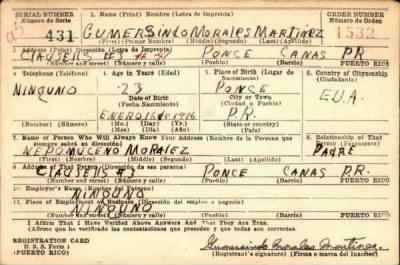 SERIAL NUMBER
Número de Serie
1. Name (Print) Nombre (Letra de Imprenta)
ORDER NUMBER
Número de Orden
431 GUMERSindo MORALES MARTINEZ 1532
(First) (Primero) (Middle) (Segundo) (Last) (Apellido)
2. Address (Print) Dirección (Letra de Imprenta)
CLAUSELLS PONCE CANAS P.R.
(Number and street) (Número y calle) (Town) (Pueblo) PUERTO RICO
3. Telephone (Teléfono)
4. Age in Years (Edad)
5. Place of Birth (Lugar de Nacimiento)
6. Country of Citizenship (Ciudadanía)
NINGUNO 23 PONCE
Date of Birth
(Fecha Nacimiento)
City or Town
(Ciudad o Pueblo)
E.U.A.
ENERO 16 de 1916 P.R.
(Number) (Número)
7. Name of Person Who Will Always Know Your Address (Nombre de la Persona que siempre sabrá su dirección)
Relationship of That Person (Parentesco)
NEPOMUCENO MORALEZ PADRE
(First) (Primero) (Middle) (Segundo) (Last) (Apellido)
Address of That Person (Dirección de esa persona)
CLAUSELLS PONCE CANAS P.R.
(Number and street) (Número y calle) (Town) (Pueblo) PUERTO RICO
10. Employer's Name (Nombre del Patrono)
NINGUNO
Place of Employment or Business (Dirección del empleo o negocio)
NINGUNO
(Number and street) (Número y calle) (Town) (Pueblo) PUERTO RICO
I Affirm That I Have Verified Above Answers and That They Are True.
(Afirmo que he verificado las contestaciones que preceden y que éstas son ciertas)
REGISTRATION CARD
D. S. S. Form 1
(PUERTO RICO)
Gumersindo Morales Martinez
(Registrant's signature) (Firma o marca del Inscrito)